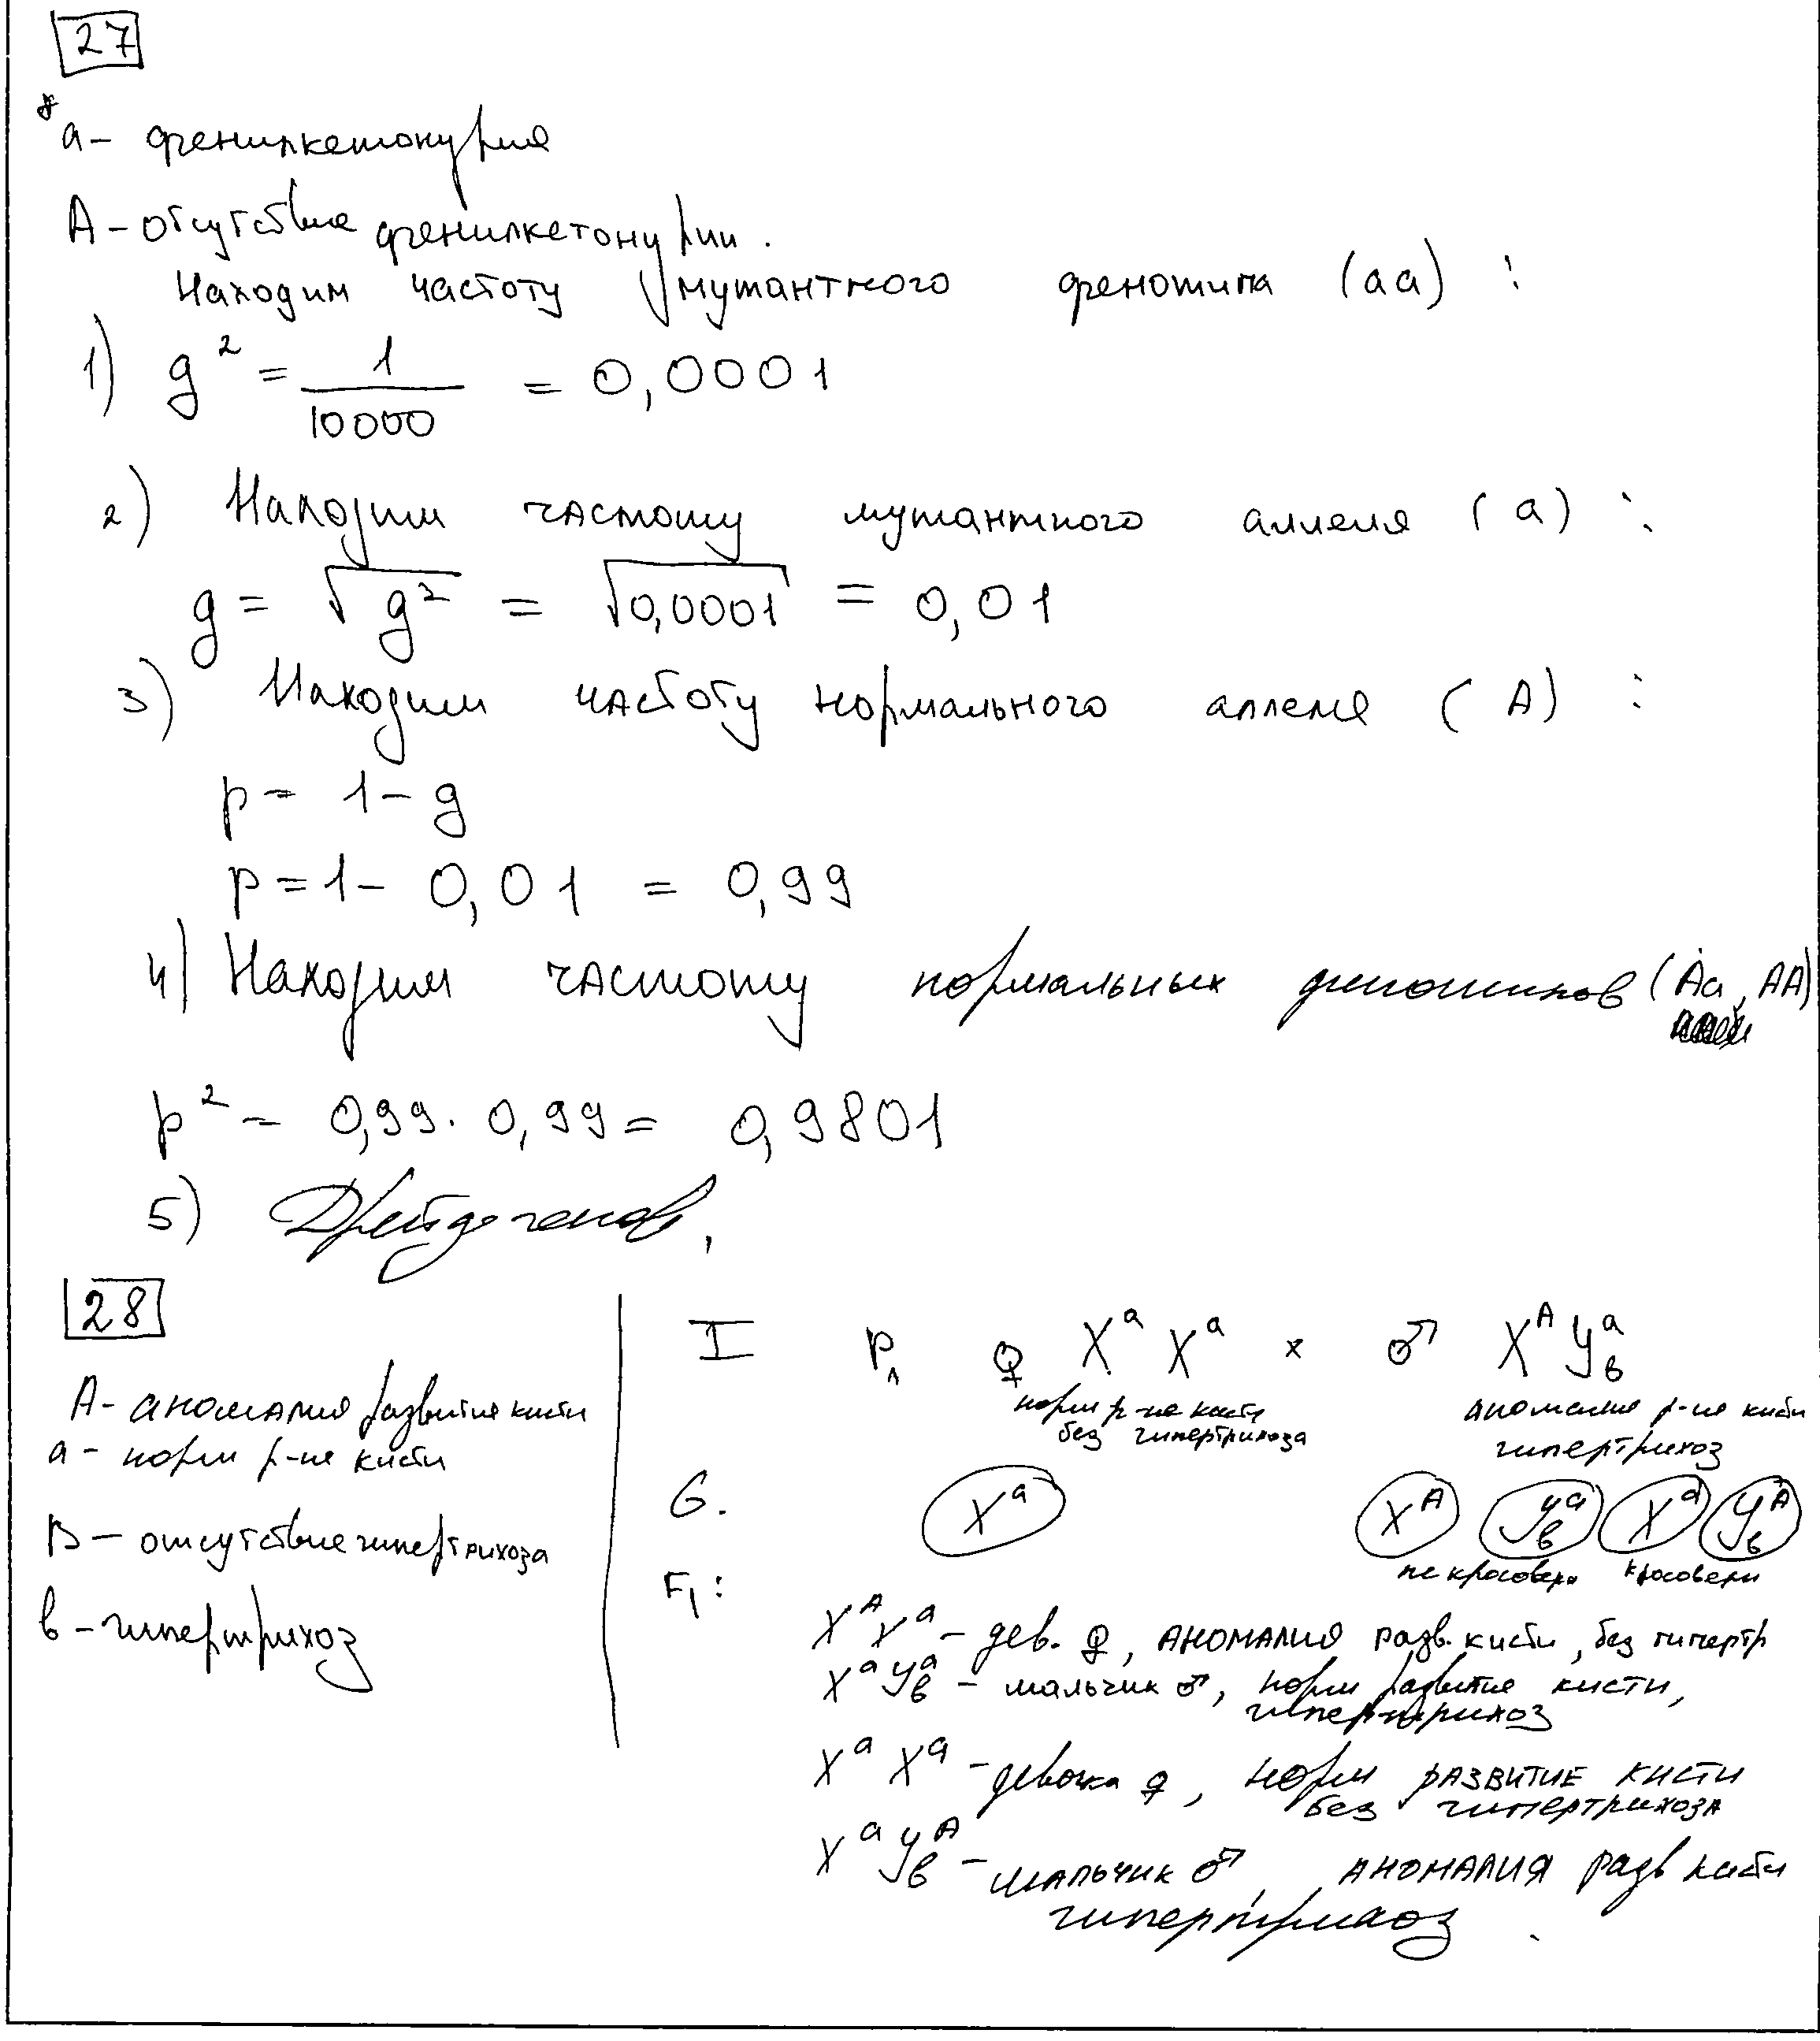 27
а - фенилкетонурия
А - отсутствие фенилкетонурии.
Находим частоту мутантного фенотипа (аа) :
1) g² = 1/10000 = 0,0001
2) Находим частоту мутантного аллеля (а) :
g = √g² = √0,0001 = 0,01
3) Находим частоту нормального аллеля (А) :
p = 1 - g
p = 1 - 0,01 = 0,99
4) Находим частоту нормальных фенотипов (Аа, АА)
p² = 0,99 · 0,99 = 0,9801
5) Дрейф генов,
28
А - аномалия развития кисти
а - норм р-ие кисти
В - отсутствие гипертрихоза
в - гипертрихоз
I P₁ ♀ Xᵃ Xᵃ × ♂ Xᴬ Yᵃв
норм р-ие кисти
без гипертрихоза
аномалия р-ие кисти
гипертрихоз
G. Xᵃ Xᴬ Yᵃв Xᵃ Yᴬв
не кросоверн кросоверн
F₁ :
Xᴬ Xᵃ - дев. ♀, аномалия разв. кисти, без гипертр
Xᵃ Yᵃв - мальчик ♂, норм развитие кисти,
гипертрихоз
Xᵃ Xᵃ - девочка ♀, норм развитие кисти
без гипертрихоза
Xᵃ Yᴬв - мальчик ♂, аномалия разв кисти
гипертрихоз.